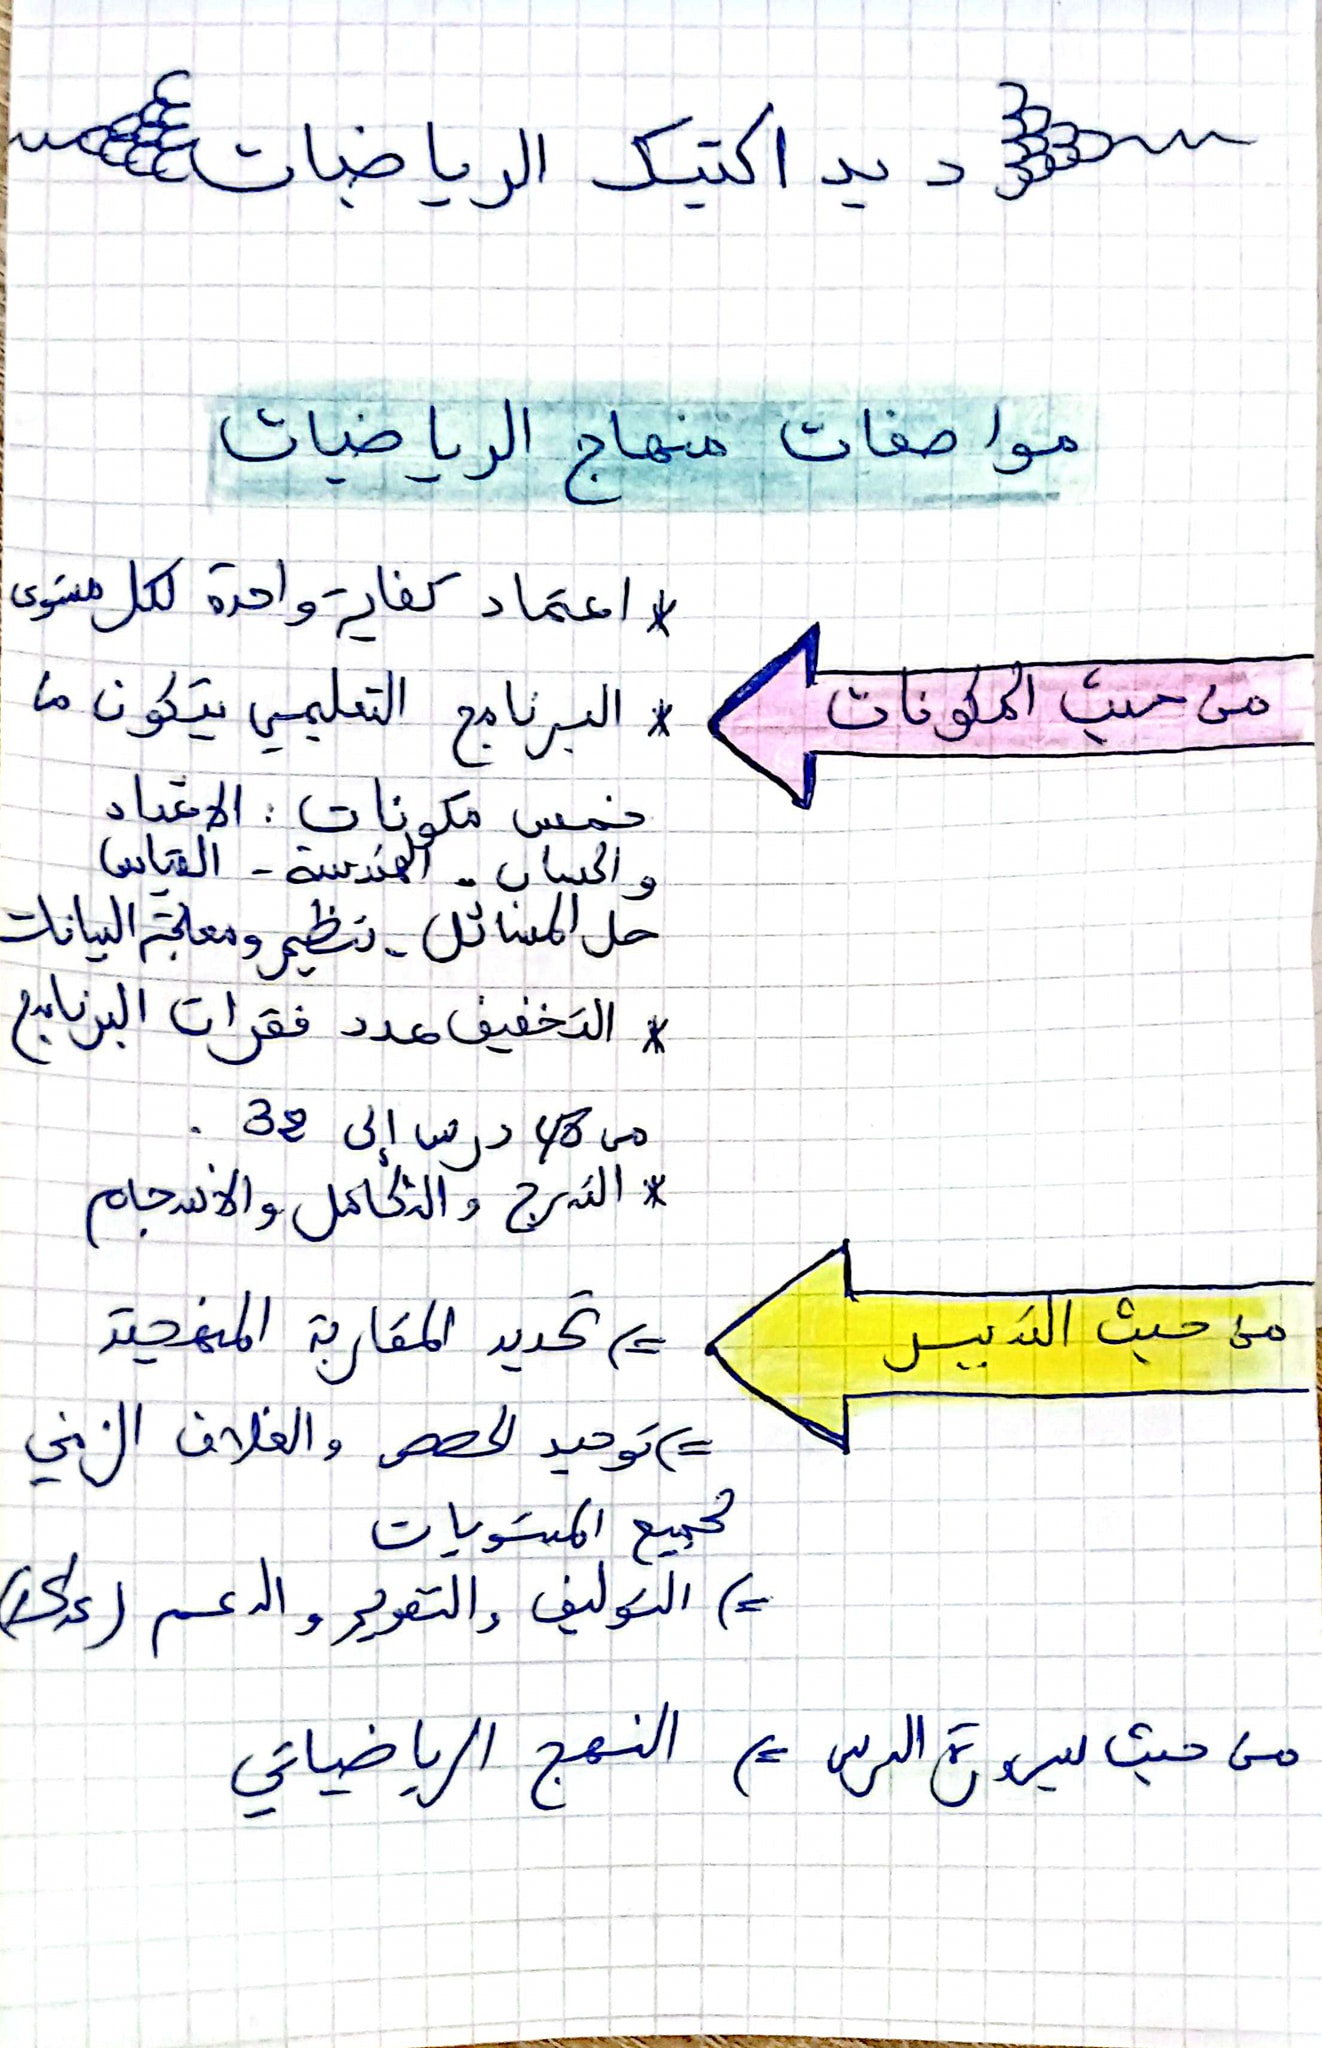 ديداكتيك الرياضيات
مواصفات منهاج الرياضيات
من حيث المكونات
* اعتماد كفاية واحدة لكل مستوى
* البرنامج التعليمي يتكون من
خمس مكونات : الاعداد
والحساب - الهندسة - القياس
حل المسائل - تنظيم ومعالجة البيانات
* التخفيف عدد فقرات البرنامج
من 48 درسا إلى 38 .
* التدرج والتكامل والانسجام
من حيث التدبير
=> تحديد المقاربة المنهجية
=> توحيد الحصص والغلاف الزمني
لجميع المستويات
=> التوليف والتقويم والدعم
من حيث سيرورة الدرس => النهج الرياضياتي